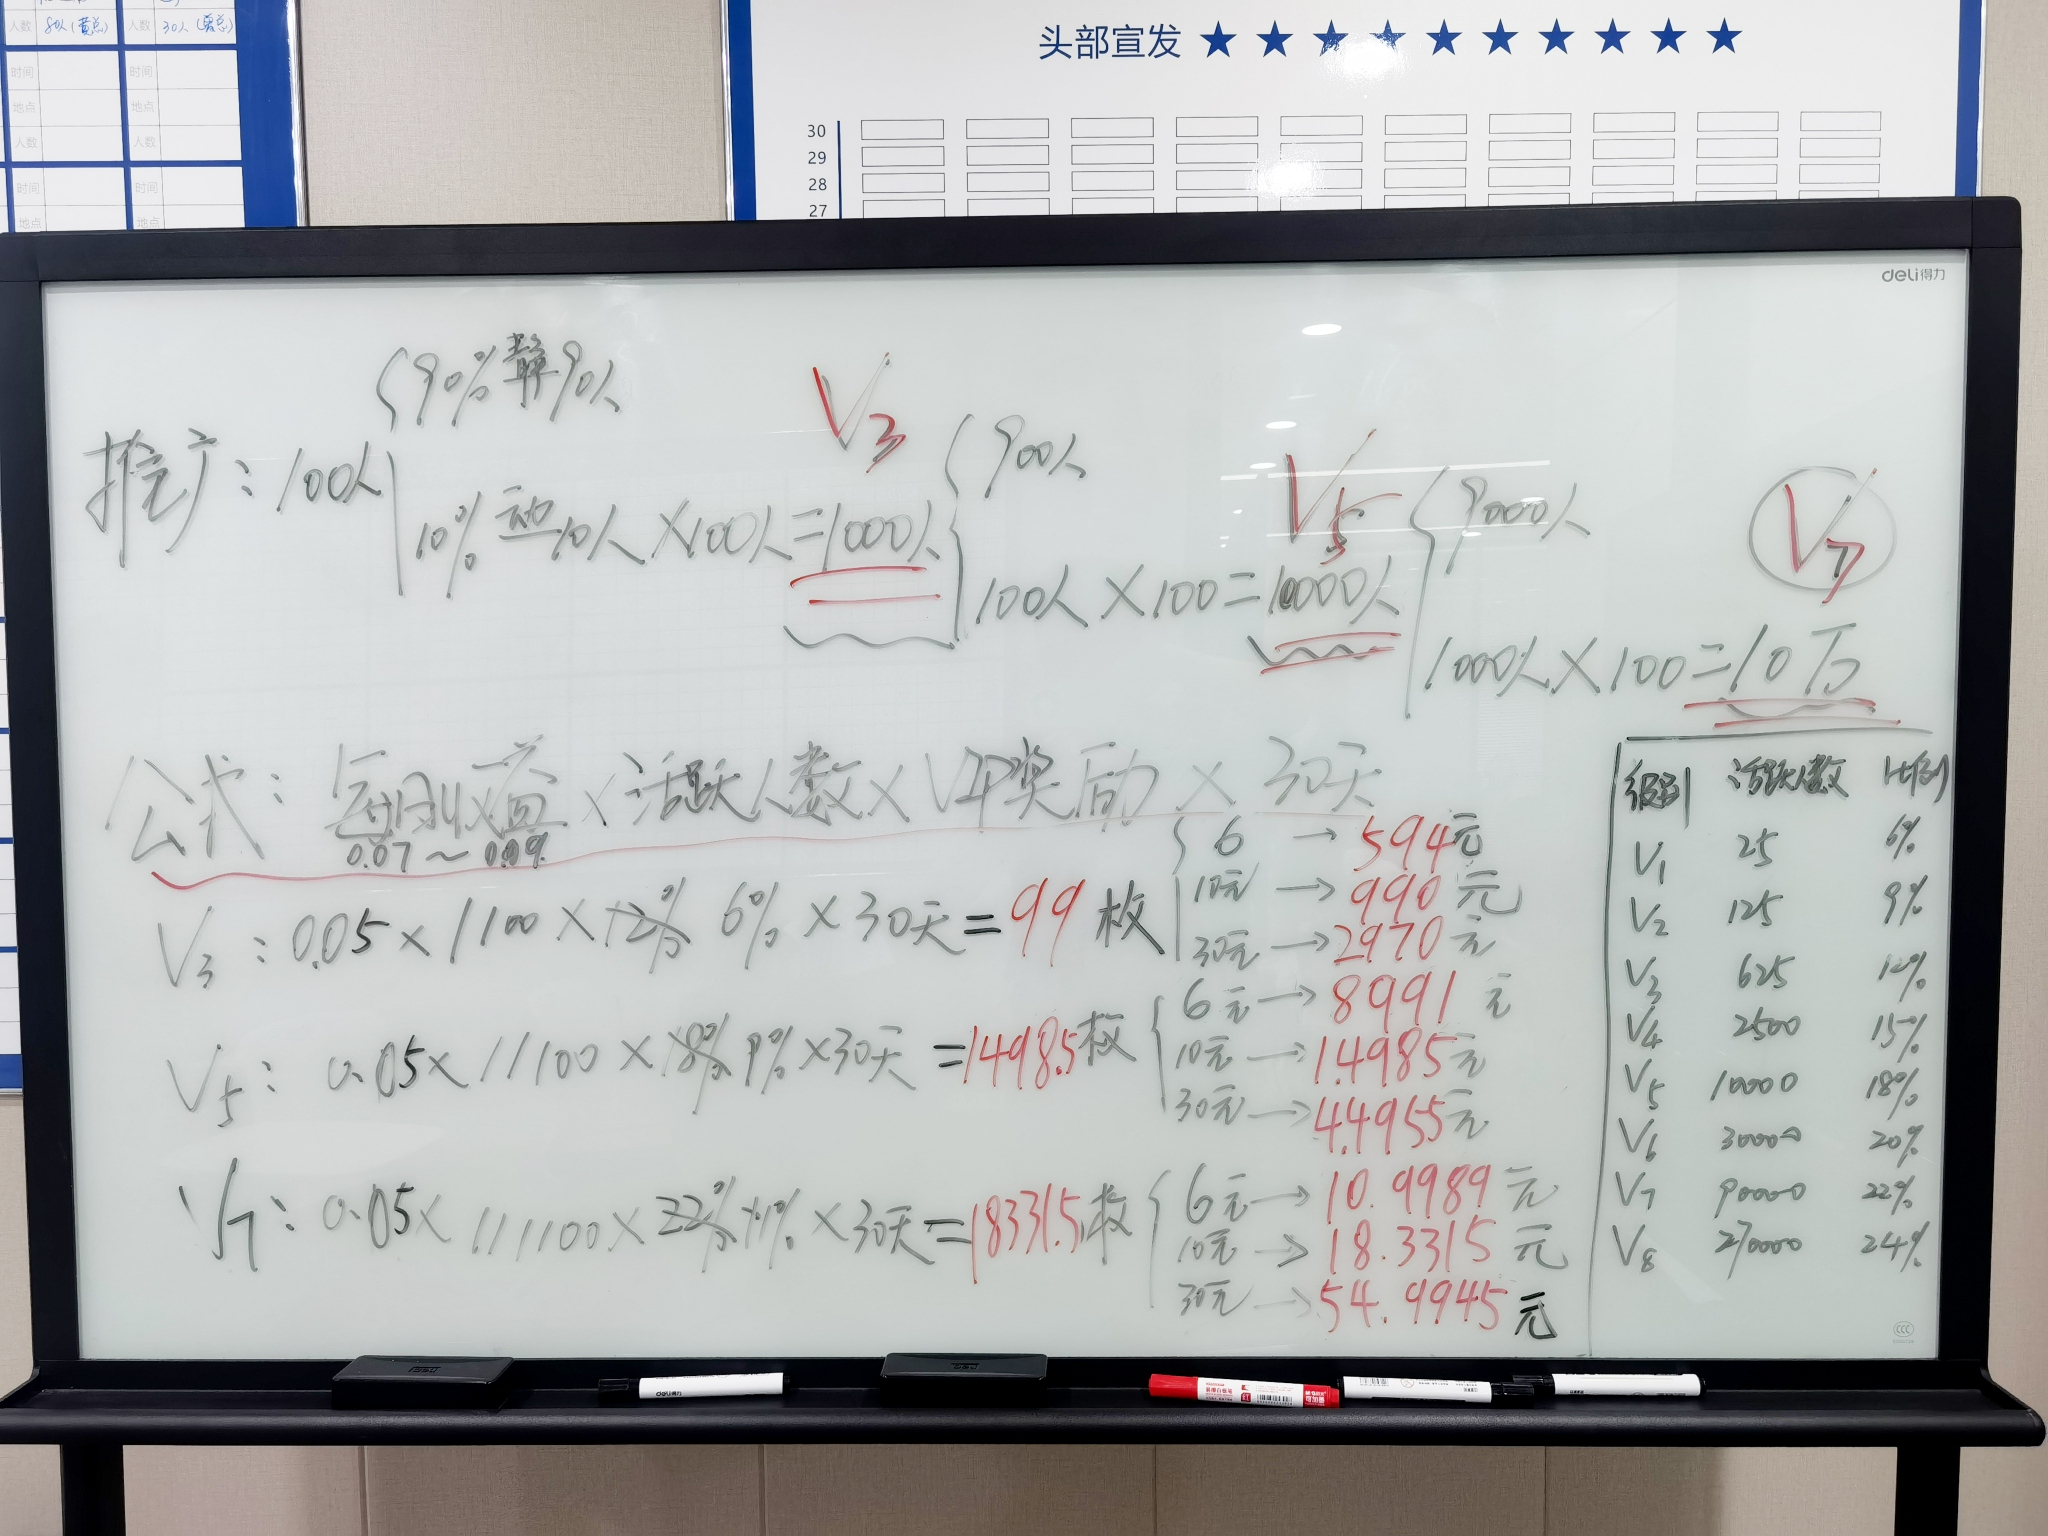 人数 80人(黄总) 人数 30人(吴总)
时间 时间
地点 地点
人数 人数
时间 时间
地点 地点
头部宣发 ★ ★ ★ ★ ★ ★ ★ ★ ★ ★
30
29
28
27
deli得力
90% 静 90人
推广: 100人
10% 动 10人 ×100人=1000人
V3
900人
100人×100=10000人
V5
9000人
1000人×100=10万
V7
公式: 每日收益×活跃人数×VIP奖励×30天
0.07~0.09
V3: 0.05×1100×12% 6%×30天=99枚
6→594元
10元→990元
30元→2970元
V5: 0.05×11100×18% 9%×30天=1498.5枚
6元→8991元
10元→1.4985元
30元→4.4955元
V7: 0.05×111100×22% 11%×30天=18331.5枚
6元→10.9989元
10元→18.3315元
30元→54.9945元
级别 活跃人数 比例
V1 25 6%
V2 125 9%
V3 625 12%
V4 2500 15%
V5 10000 18%
V6 30000 20%
V7 90000 22%
V8 270000 24%
deli得力